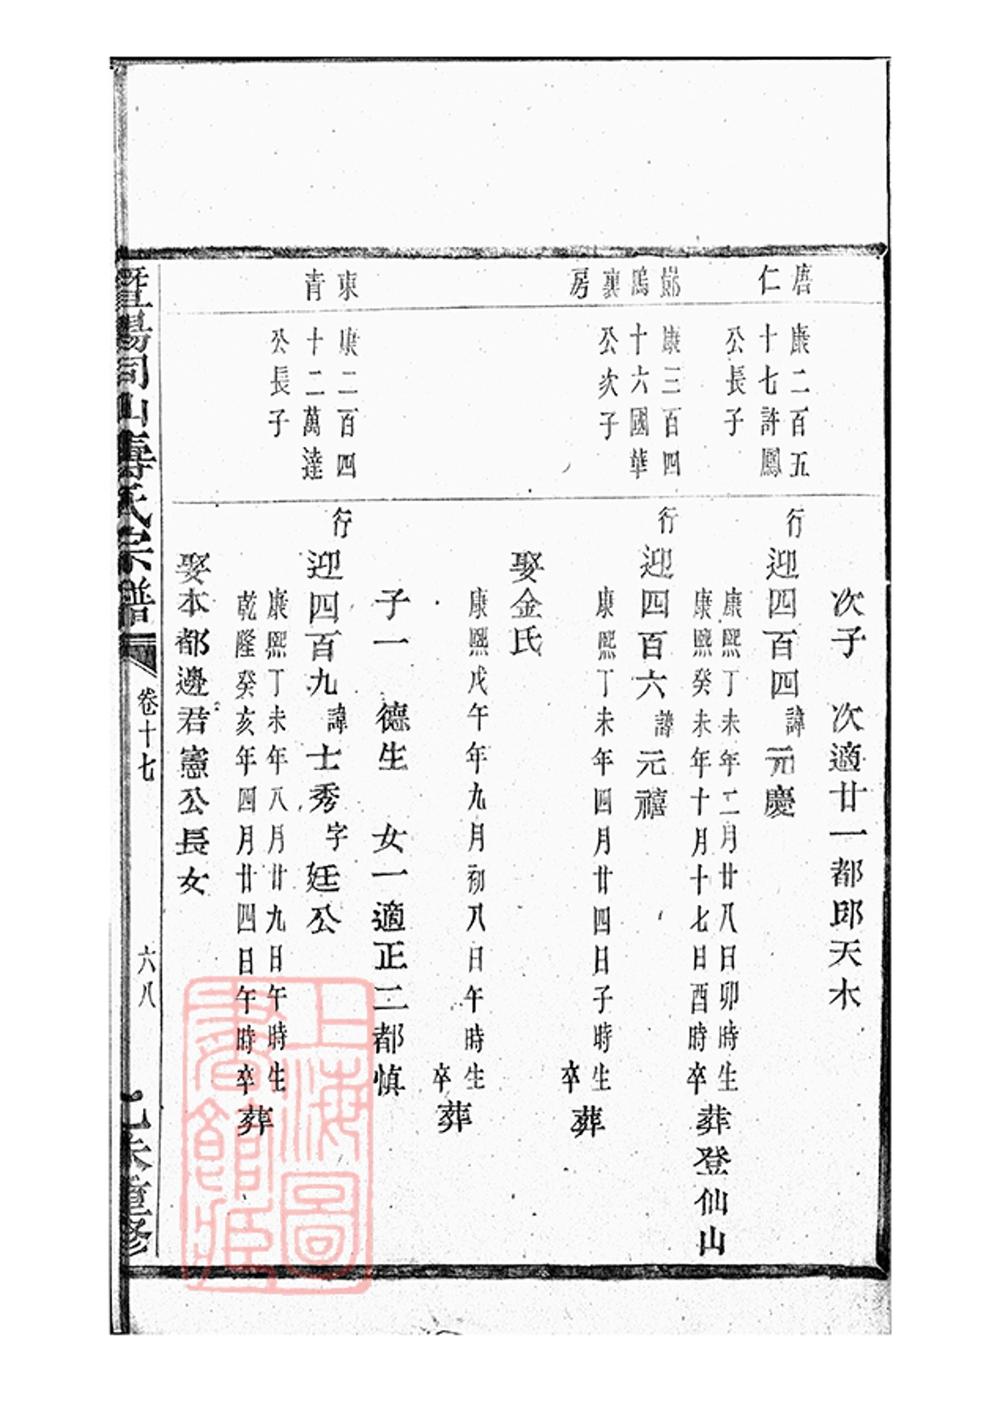 次子　次適廿一都邱天木
唐仁
康二百五
十七許鳳
公長子
行迎四百四諱元慶
康熙丁未年二月廿八日卯時生
康熙癸未年十月十七日酉時卒
葬登仙山
塢裏房
康三百四
十六國華
公次子
行迎四百六諱元禧
康熙丁未年四月廿四日子時生
卒
葬
娶金氏
康熙戊午年九月初八日午時生
卒
葬
子一　德生　女一適正二都慎
東青
康二百四
十二萬達
公長子
行迎四百九諱士秀字廷公
康熙丁未年八月廿九日午時生
乾隆癸亥年四月廿四日午時卒
葬
娶本都邊君憲公長女
暨陽同山壽氏宗譜
卷十七
六八
乙未重修
上海圖
書館藏